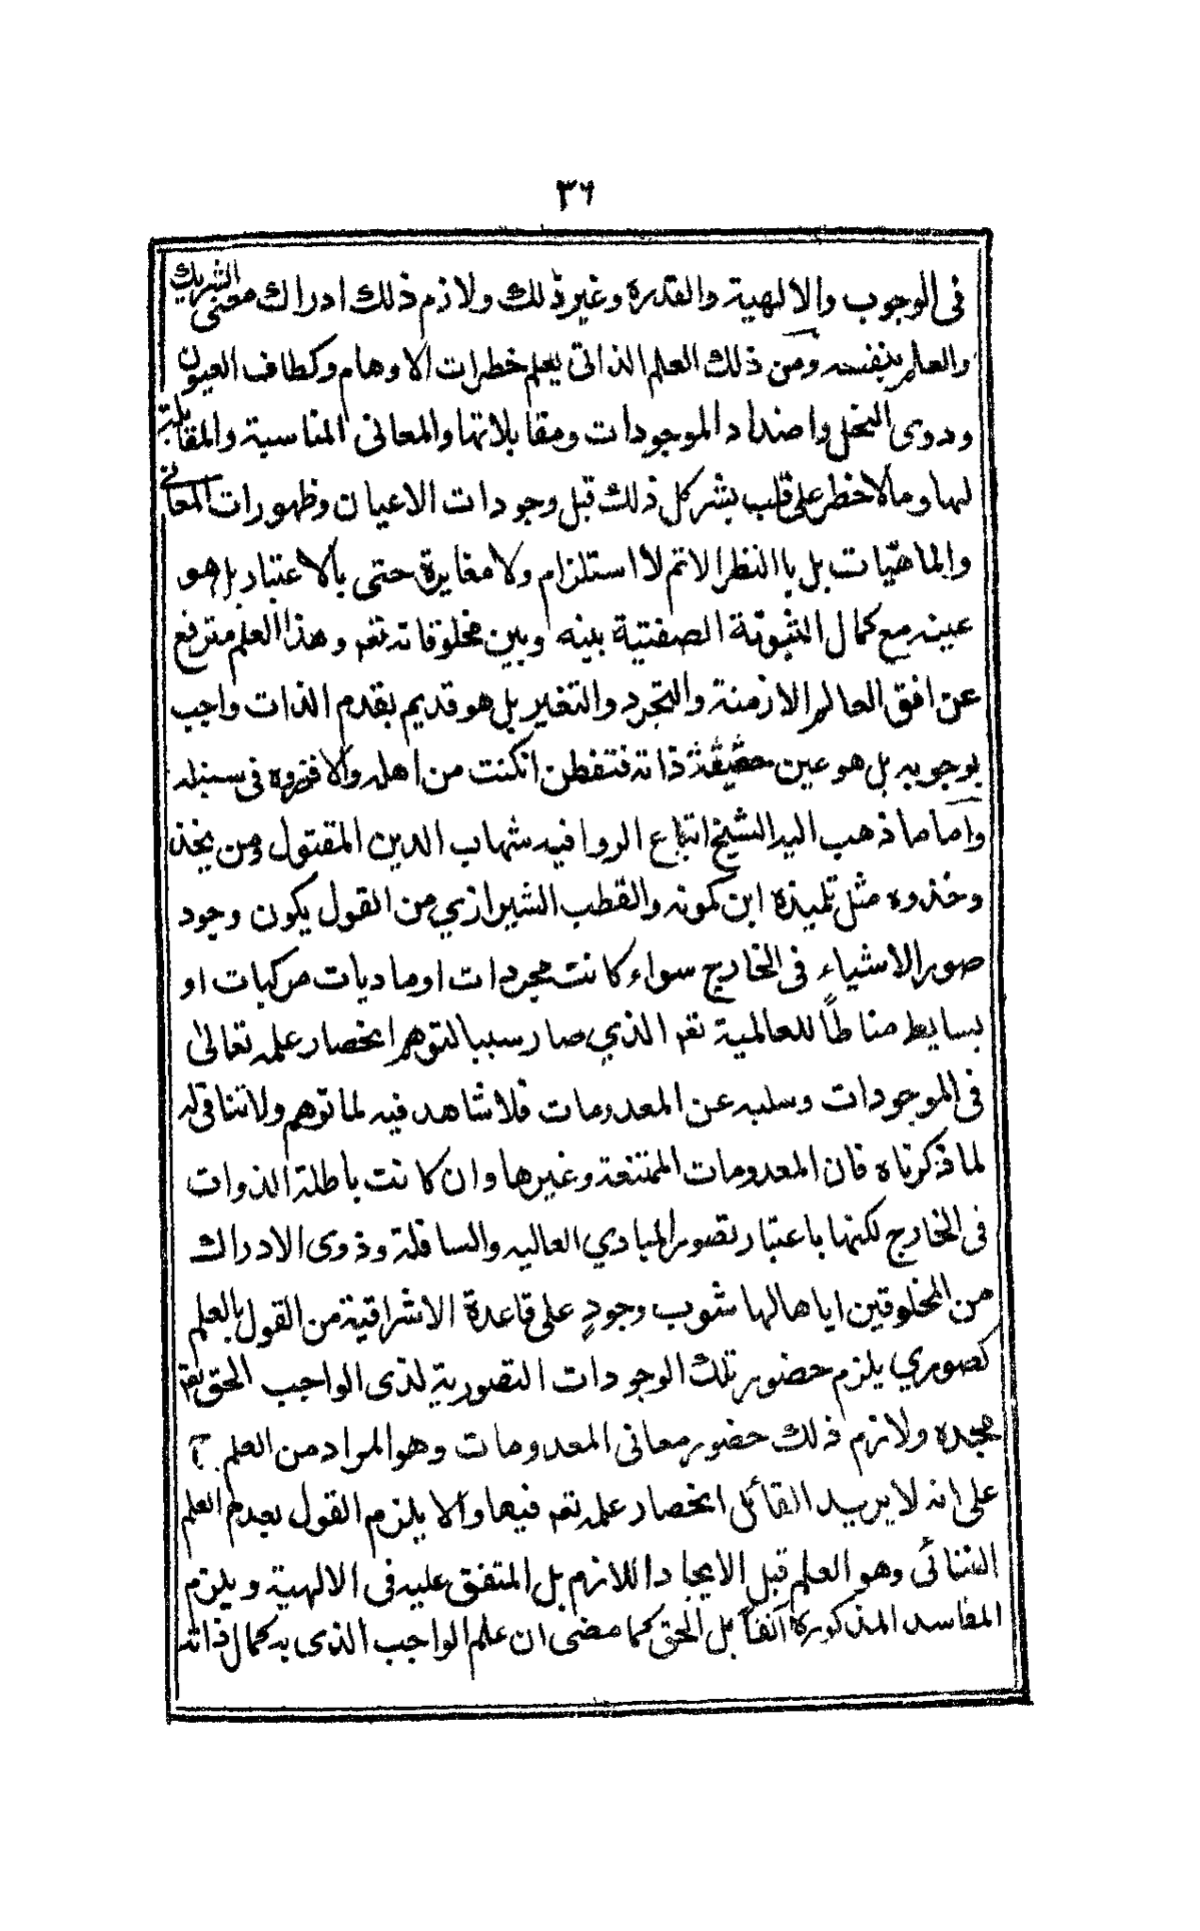 ٣٦
فى الوجوب والالهية والقدرة وغير ذلك ولازم ذلك ادراك معنى الشريك
والعلم بنفسه ومن ذلك العلم الذاتى يعلم خطرات الاوهام وكطاف العيون
ودوى النحل واضداد الموجودات ومقابلاتها والمعانى المناسبة والمقابلة
لها وما لا خطر على قلب بشر كل ذلك قبل وجودات الاعيان وظهورات المعانى
والماهيّات بل باالنظر الاتم لا استلزام ولا مغايرة حتى بالاعتبار بل هو
عينه مع كمال الصفتية بينه وبين مخلوقاته تعم وهذا العلم مترفع
عن افق العالم الازمنة والتجرد والتغير بل هو قديم بقدم الذات واجب
بوجوبه بل هو عين حقيقة ذاته فتفطن انكنت من اهله والا فذروه فى سنبله
واما ما ذهب اليه الشيخ اتباع الروافيه شهاب الدين المقتول ومن يحذ
وحذوه مثل تلميذه ابن كمونه والقطب الشيرازي من القول بكون وجود
صور الاشياء فى الخارج سواء كانت مجردات او ماديات مركبات او
بسايط مناطاً للعالمية تعم الذي صار سببا لتوهم انحصار علمه تعالى
فى الموجودات وسلبه عن المعدومات فلا شاهد فيه لما توهم ولا تنافى له
لما ذكرناه فان المعدومات الممتنعة وغيرها وان كانت باطلة الذوات
فى الخارج لكنها باعتبار تصور المبادي العاليه والسافلة وذوى الادراك
من المخلوقين اياها لها شوب وجودٍ على قاعدة الاشراقية من القول بالعلم
كصوري يلزم حضور تلك الوجودات التصورية لذى الواجب الحق تعم
مجده ولازم ذلك حضور معانى المعدومات وهو المراد من العلم ح
على انه لا يريد القائل انحصار علمه تعم فيها والا يلزم القول بعدم العلم
الثنائى وهو العلم قبل الايجاد اللازم بل المتفق عليه فى الالهية ويلزم
المفاسد المذكورة آنفاً بل الحق كما مضى ان علم الواجب الذى به كمال ذاته